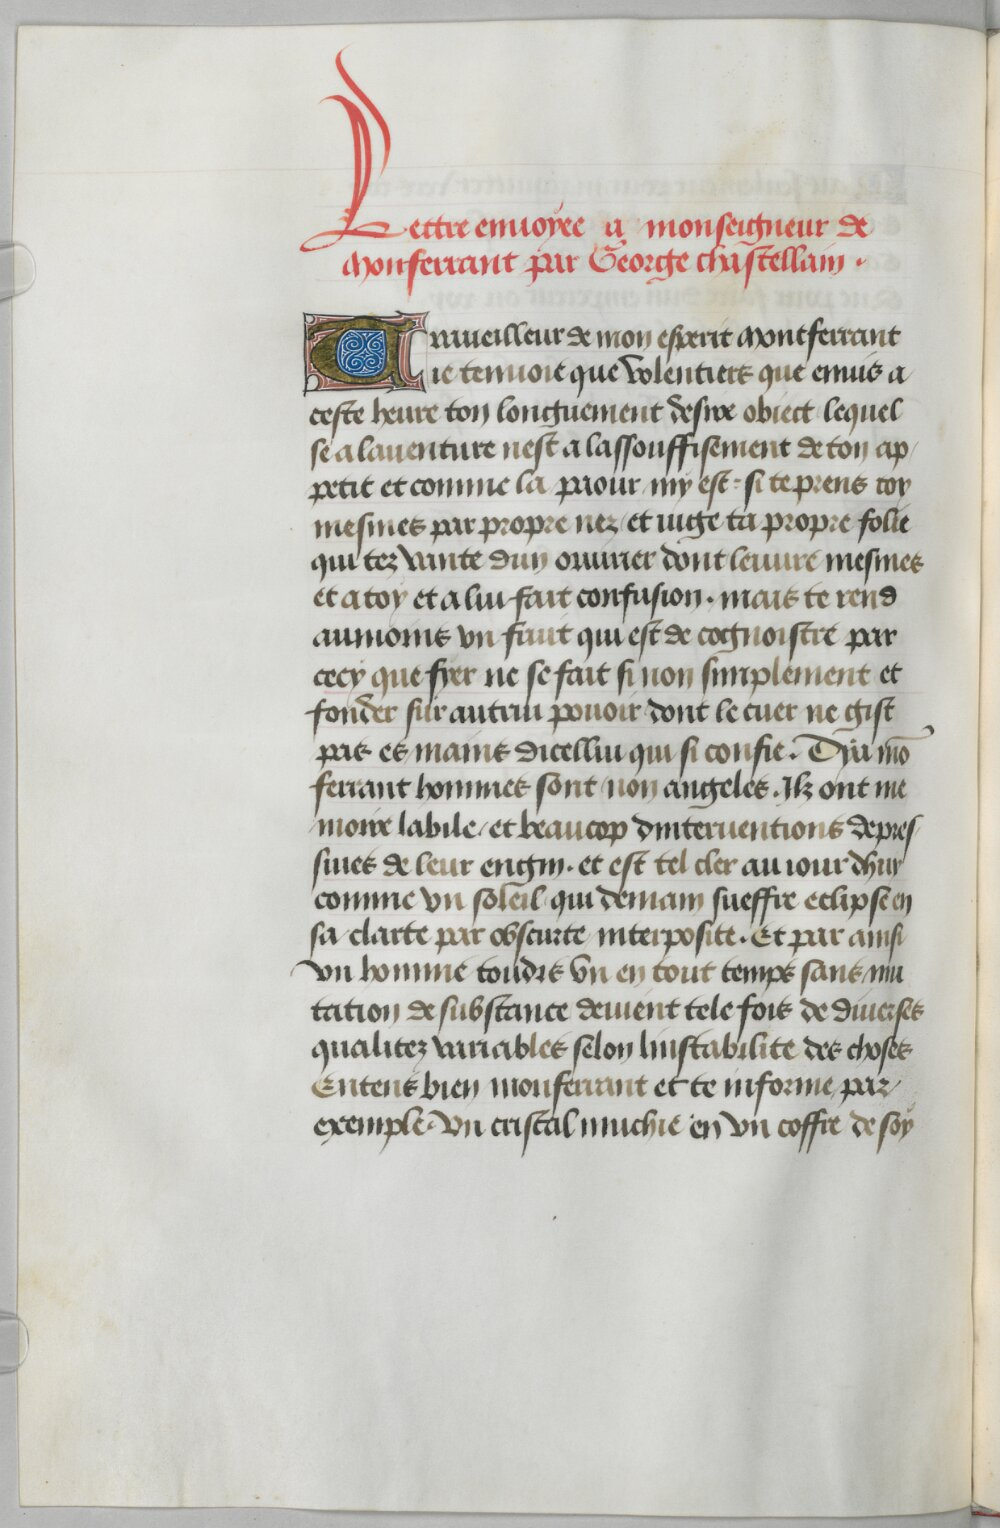 Lettre enuoyee a monseigneur de
Monferrant par George chastellain .
Traueilleur de mon esperit Montferrant
ie tenuoie que volentiers que enuis a
ceste heure ton longuement desire obiect lequel
se a lauenture nest a lassouffisement de ton ap
petit et comme la paour my est : si te prens toy
mesmes par propre nez et iuge ta propre folie
qui tez vante dun ouurier dont leuure mesmes
et a toy et a lui fait confusion . mais te rend
aumoins vn fruit qui est de cognoistre par
cecy que fyer ne se fait si non simplement et
fonder sur autrui pouoir dont le cuer ne gist
pas es mains dicellui qui si confie . Dya mõ
ferrant hommes sont non angeles . Ilz ont me
moire labile / et beaucop dinteruentions depres
siues de leur engin . et est tel cler au iour dhuy
comme vn soleil / qui demain sueffre eclipse en
sa clarte par obscurte interposite . Et par ainsi
vn homme toudis vn en tout temps sans mu
tation de substance deuient tele fois de diuerses
qualitez variables selon linstabilite des choses
Entens bien monferrant et te informe par
exemple . Vn cristal muchie en vn coffre de soy